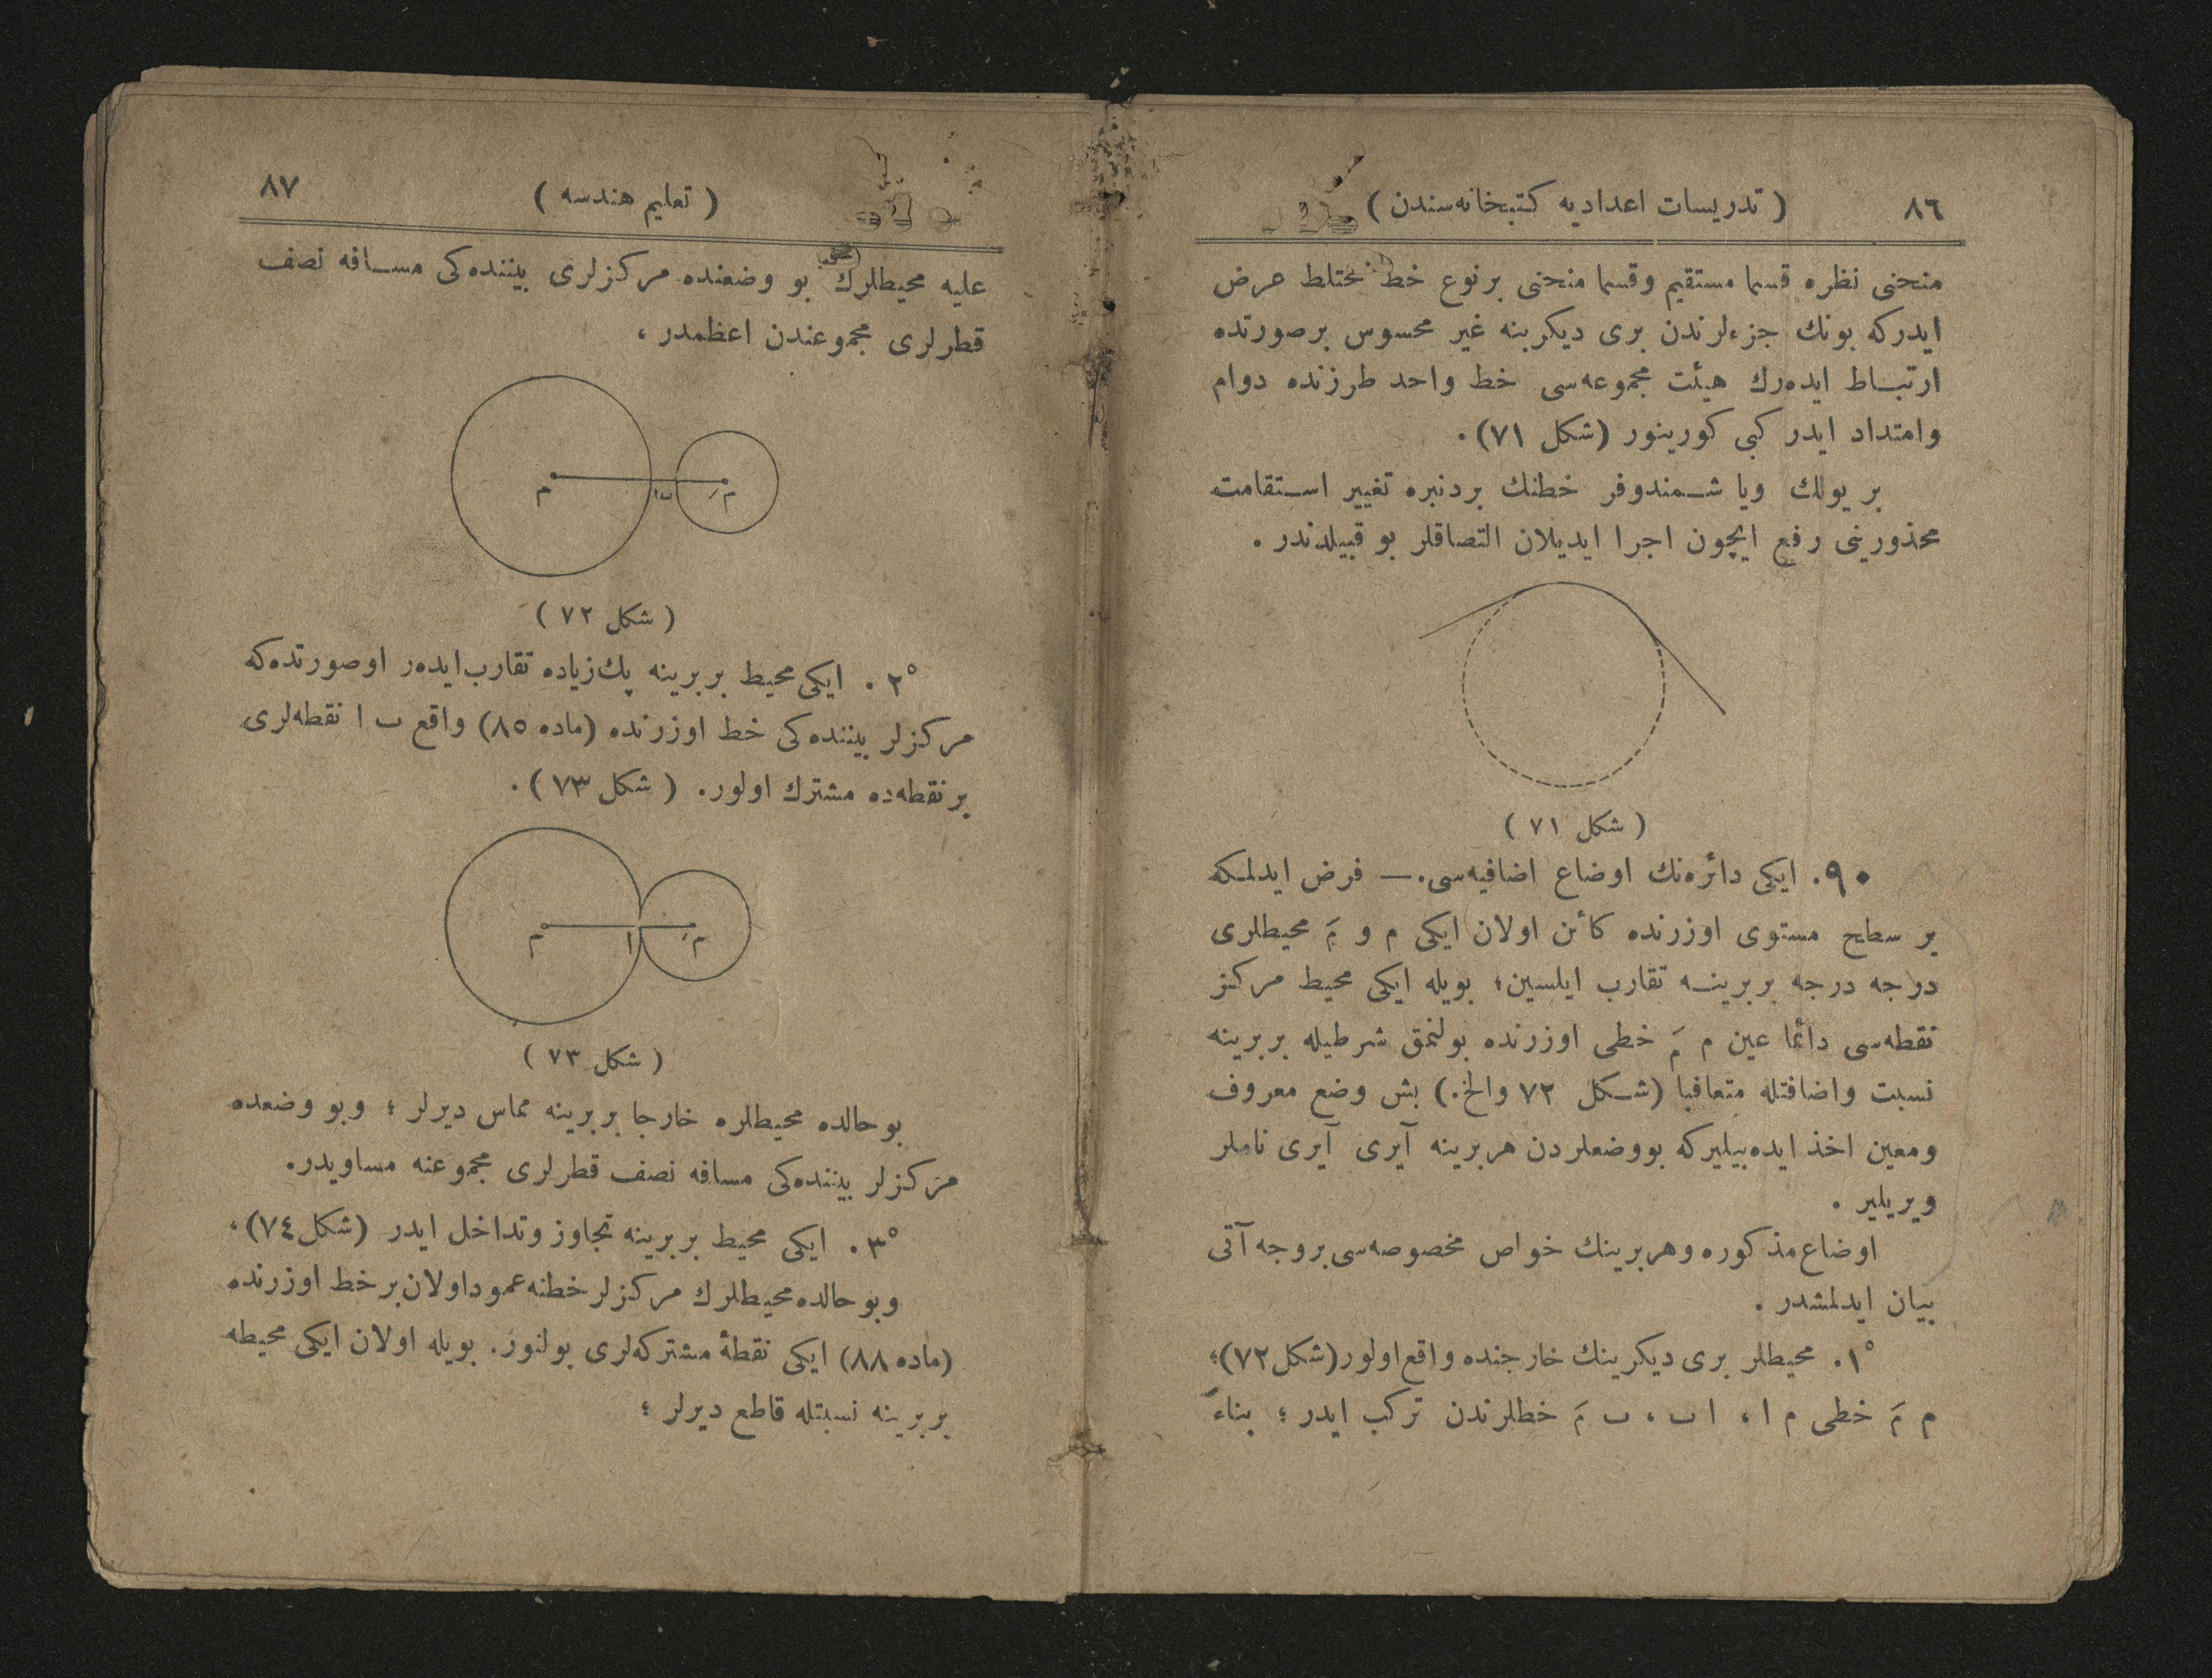 ٨٦
( تدريسات اعداديه كتبخانه‌سندن )
منحنى نظره قسما مستقيم وقسما منحنى برنوع خط مختلط عرض
ايدركه بونك جزءلرندن برى ديكرينه غير محسوس برصورتده
ارتباط ايده‌رك هيئت مجموعه‌سى خط واحد طرزنده دوام
وامتداد ايدر كبى كورينور (شكل ٧١) .
بر يولك ويا شمندوفر خطنك بردنبره تغيير استقامت
محذورينى رفع ايچون اجرا ايديلان التصاقلر بو قبيلدندر .
( شكل ٧١ )
٩٠ . ايكى دائره‌نك اوضاع اضافيه‌سى . — فرض ايدلمكه
بر سطح مستوى اوزرنده كائن اولان ايكى م و مَ محيطلرى
درجه درجه بربرينه تقارب ايلسين ؛ بويله ايكى محيط مركز
نقطه‌سى دائما عين م مَ خطى اوزرنده بولنمق شرطيله بربرينه
نسبت واضافتله متعاقبا (شكل ٧٢ والخ .) بش وضع معروف
ومعين اخذ ايده‌بيليركه بووضعلردن هربرينه آيرى آيرى ناملر
ويريلير .
اوضاع مذكوره وهربرينك خواص مخصوصه‌سى بروجه آتى
بيان ايدلمشدر .
١° . محيطلر برى ديكرينك خارجنده واقع اولور (شكل ٧٢) ؛
م مَ خطى م ا ، ا ب ، ب مَ خطلرندن تركب ايدر ؛ بناءً
٨٧
( تعليم هندسه )
عليه محيطلرك بو وضعنده مركزلرى بيننده‌كى مسافه نصف
قطرلرى مجموعندن اعظمدر ،
م
ا ب
مَ
( شكل ٧٢ )
٢° . ايكى محيط بربرينه پك زياده تقارب ايده‌ر اوصورتده‌كه
مركزلر بيننده‌كى خط اوزرنده (ماده ٨٥) واقع ب ا نقطه‌لرى
بر نقطه‌ده مشترك اولور . ( شكل ٧٣ ) .
م
ا
مَ
( شكل ٧٣ )
بو حالده محيطلره خارجا بربرينه مماس ديرلر ؛ وبو وضعده
مركزلر بيننده‌كى مسافه نصف قطرلرى مجموعنه مساويدر .
٣° . ايكى محيط بربرينه تجاوز وتداخل ايدر (شكل ٧٤) ،
وبو حالده محيطلرك مركزلر خطنه عمود اولان بر خط اوزرنده
(ماده ٨٨) ايكى نقطهٔ مشتركه‌لرى بولنور . بويله اولان ايكى محيطه
بربرينه نسبتله قاطع ديرلر ؛